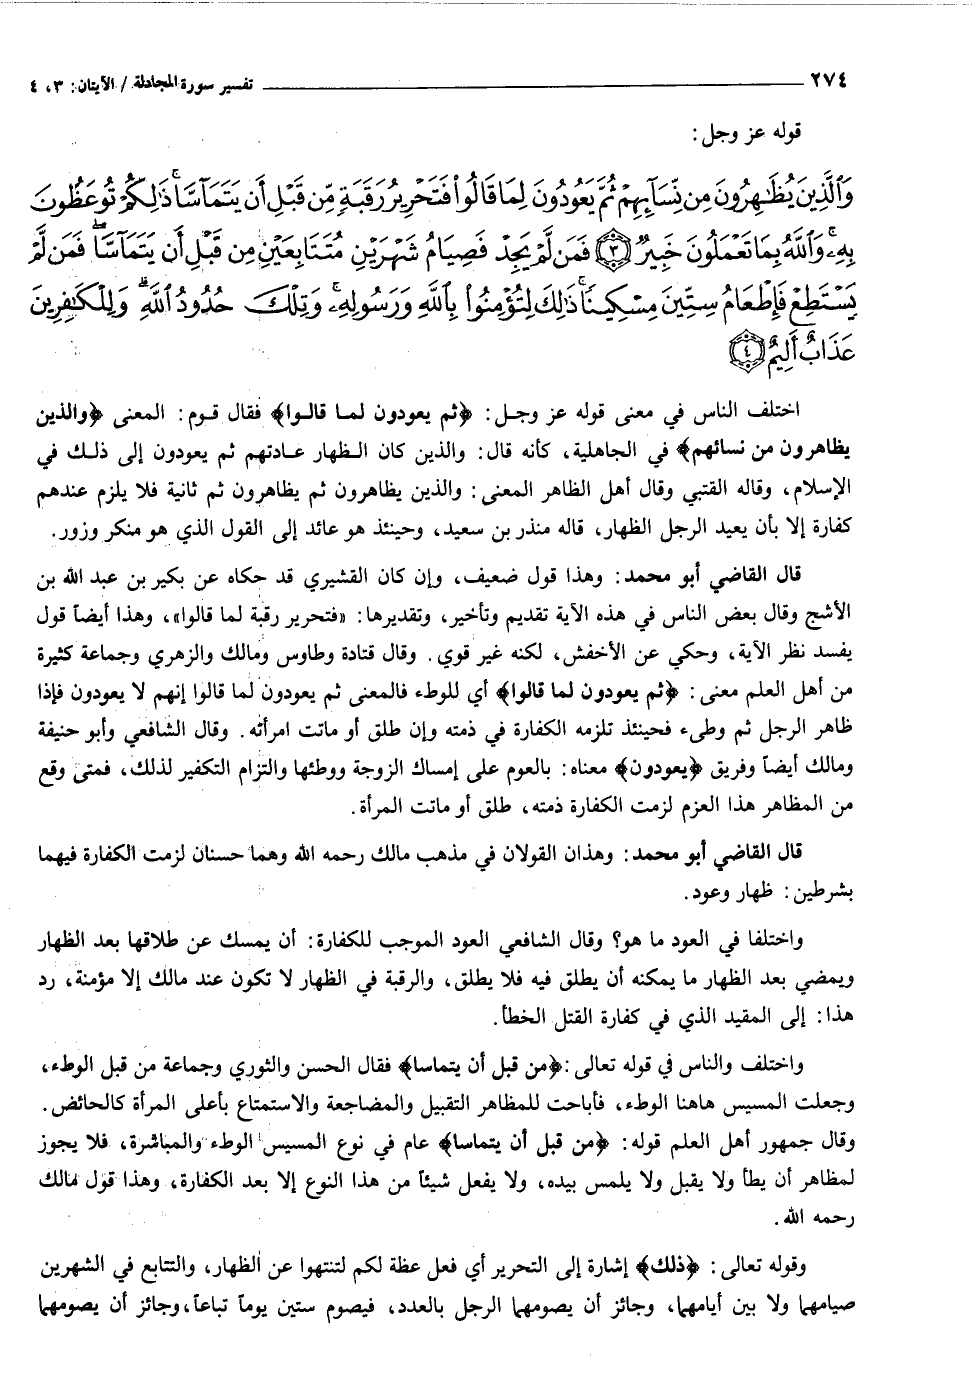 ٢٧٤ تفسير سورة المجادلة / الآيتان: ٣، ٤
قوله عز وجل:
وَالَّذِينَ يُظَاهِرُونَ مِن نِّسَآئِهِمْ ثُمَّ يَعُودُونَ لِمَا قَالُوا۟ فَتَحْرِيرُ رَقَبَةٍ مِّن قَبْلِ أَن يَتَمَآسَّا ۚ ذَٰلِكُمْ تُوعَظُونَ
بِهِۦ ۚ وَاللَّهُ بِمَا تَعْمَلُونَ خَبِيرٌ ﴿٣﴾ فَمَن لَّمْ يَجِدْ فَصِيَامُ شَهْرَيْنِ مُتَتَابِعَيْنِ مِن قَبْلِ أَن يَتَمَآسَّا ۖ فَمَن لَّمْ
يَسْتَطِعْ فَإِطْعَامُ سِتِّينَ مِسْكِينًا ۚ ذَٰلِكَ لِتُؤْمِنُوا۟ بِاللَّهِ وَرَسُولِهِۦ ۚ وَتِلْكَ حُدُودُ اللَّهِ ۗ وَلِلْكَٰفِرِينَ
عَذَابٌ أَلِيمٌ ﴿٤﴾
اختلف الناس في معنى قوله عز وجل: ﴿ثم يعودون لما قالوا﴾ فقال قوم: المعنى ﴿والذين
يظاهرون من نسائهم﴾ في الجاهلية، كأنه قال: والذين كان الظهار عادتهم ثم يعودون إلى ذلك في
الإسلام، وقاله القتبي وقال أهل الظاهر المعنى: والذين يظاهرون ثم يظاهرون ثم ثانية فلا يلزم عندهم
كفارة إلا بأن يعيد الرجل الظهار، قاله منذر بن سعيد، وحينئذ هو عائد إلى القول الذي هو منكر وزور.
قال القاضي أبو محمد: وهذا قول ضعيف، وإن كان القشيري قد حكاه عن بكير بن عبد الله بن
الأشج وقال بعض الناس في هذه الآية تقديم وتأخير، وتقديرها: «فتحرير رقبة لما قالوا»، وهذا أيضاً قول
يفسد نظر الآية، وحكي عن الأخفش، لكنه غير قوي. وقال قتادة وطاوس ومالك والزهري وجماعة كثيرة
من أهل العلم معنى: ﴿ثم يعودون لما قالوا﴾ أي للوطء فالمعنى ثم يعودون لما قالوا إنهم لا يعودون فإذا
ظاهر الرجل ثم وطىء فحينئذ تلزمه الكفارة في ذمته وإن طلق أو ماتت امرأته. وقال الشافعي وأبو حنيفة
ومالك أيضاً وفريق ﴿يعودون﴾ معناه: بالعوم على إمساك الزوجة ووطئها والتزام التكفير لذلك، فمتى وقع
من المظاهر هذا العزم لزمت الكفارة ذمته، طلق أو ماتت المرأة.
قال القاضي أبو محمد: وهذان القولان في مذهب مالك رحمه الله وهما حسنان لزمت الكفارة فيهما
بشرطين: ظهار وعود.
واختلفا في العود ما هو؟ وقال الشافعي العود الموجب للكفارة: أن يمسك عن طلاقها بعد الظهار
ويمضي بعد الظهار ما يمكنه أن يطلق فيه فلا يطلق، والرقبة في الظهار لا تكون عند مالك إلا مؤمنة، رد
هذا: إلى المقيد الذي في كفارة القتل الخطأ.
واختلف والناس في قوله تعالى: ﴿من قبل أن يتماسا﴾ فقال الحسن والثوري وجماعة من قبل الوطء،
وجعلت المسيس هاهنا الوطء، فأباحت للمظاهر التقبيل والمضاجعة والاستمتاع بأعلى المرأة كالحائض.
وقال جمهور أهل العلم قوله: ﴿من قبل أن يتماسا﴾ عام في نوع المسيس الوطء والمباشرة، فلا يجوز
لمظاهر أن يطأ ولا يقبل ولا يلمس بيده، ولا يفعل شيئاً من هذا النوع إلا بعد الكفارة، وهذا قول مالك
رحمه الله.
وقوله تعالى: ﴿ذلك﴾ إشارة إلى التحرير أي فعل عظة لكم لتنتهوا عن الظهار، والتتابع في الشهرين
صيامهما ولا بين أيامهما، وجائز أن يصومهما الرجل بالعدد، فيصوم ستين يوماً تباعاً، وجائز أن يصومهما